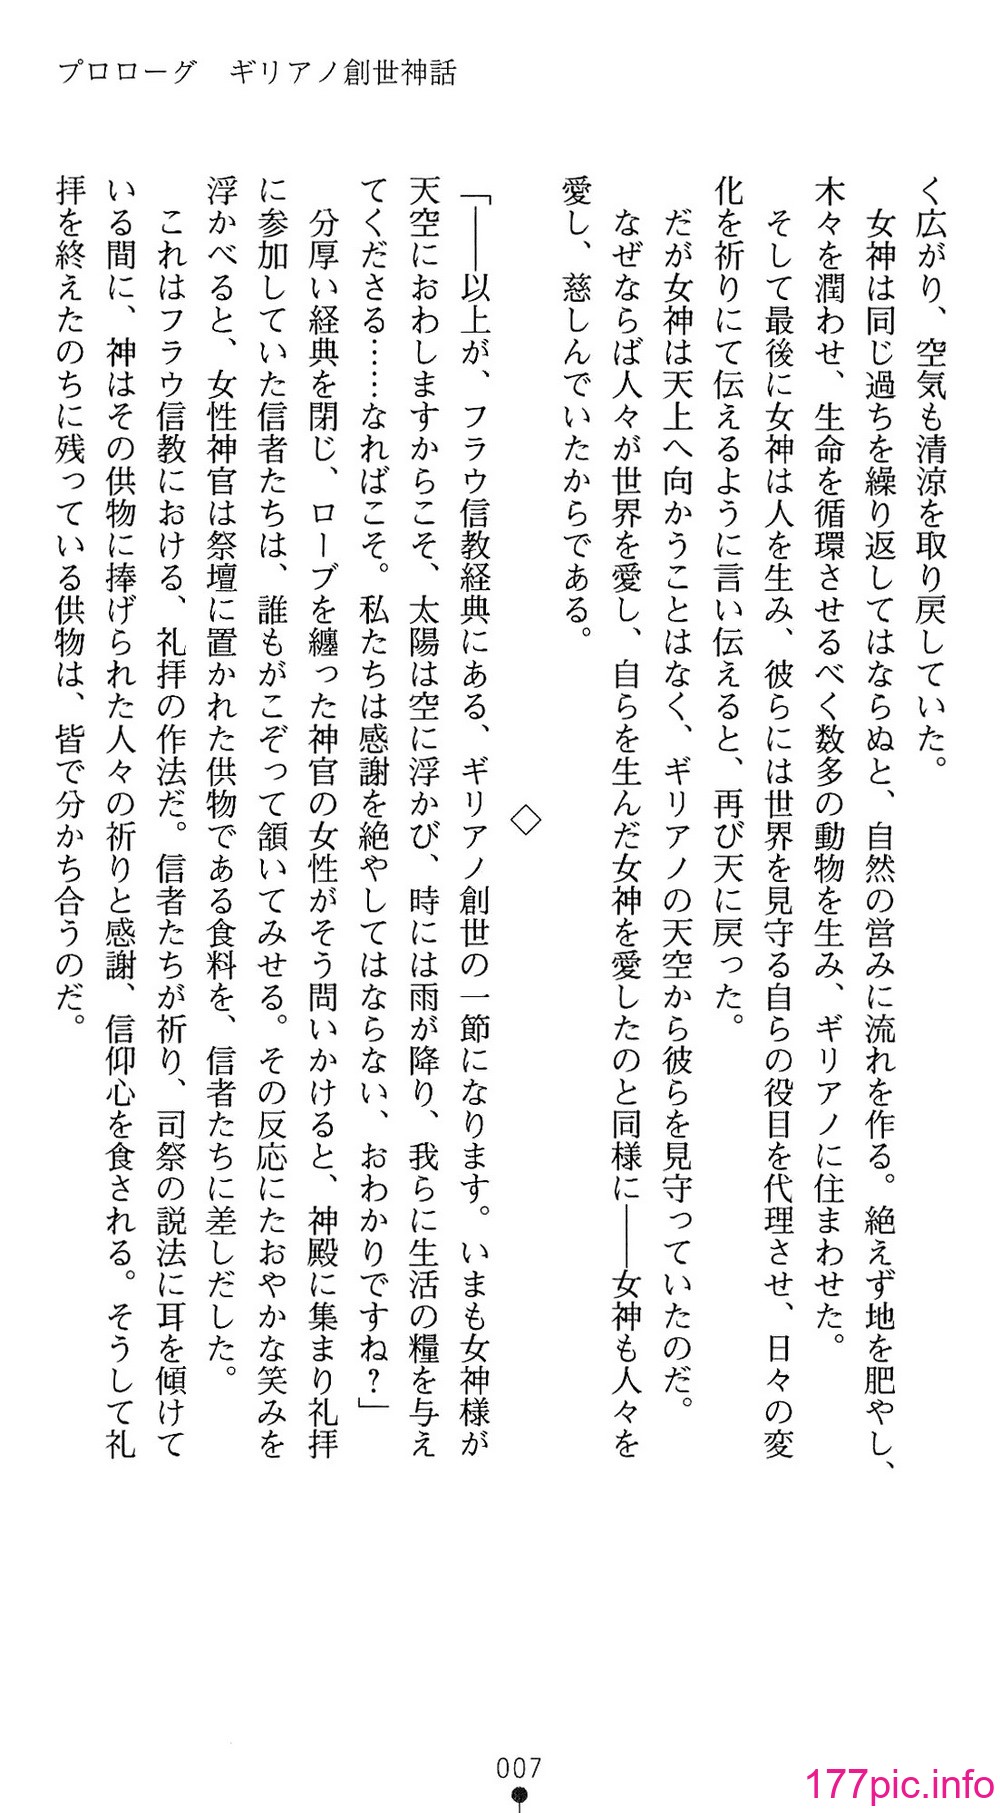 プロローグ　ギリアノ創世神話
く広がり、空気も清涼を取り戻していた。
　女神は同じ過ちを繰り返してはならぬと、自然の営みに流れを作る。絶えず地を肥やし、
木々を潤わせ、生命を循環させるべく数多の動物を生み、ギリアノに住まわせた。
　そして最後に女神は人を生み、彼らには世界を見守る自らの役目を代理させ、日々の変
化を祈りにて伝えるように言い伝えると、再び天に戻った。
　だが女神は天上へ向かうことはなく、ギリアノの天空から彼らを見守っていたのだ。
　なぜならば人々が世界を愛し、自らを生んだ女神を愛したのと同様に――女神も人々を
愛し、慈しんでいたからである。
◇
「――以上が、フラウ信教経典にある、ギリアノ創世の一節になります。いまも女神様が
天空におわしますからこそ、太陽は空に浮かび、時には雨が降り、我らに生活の糧を与え
てくださる……なればこそ。私たちは感謝を絶やしてはならない、おわかりですね？」
　分厚い経典を閉じ、ローブを纏った神官の女性がそう問いかけると、神殿に集まり礼拝
に参加していた信者たちは、誰もがこぞって頷いてみせる。その反応にたおやかな笑みを
浮かべると、女性神官は祭壇に置かれた供物である食料を、信者たちに差しだした。
　これはフラウ信教における、礼拝の作法だ。信者たちが祈り、司祭の説法に耳を傾けて
いる間に、神はその供物に捧げられた人々の祈りと感謝、信仰心を食される。そうして礼
拝を終えたのちに残っている供物は、皆で分かち合うのだ。
007
177pic.info